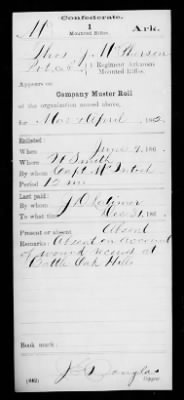 Confederate.
M 1 Ark.
Mounted Rifles.
Thos J McPherson
Pvt Co 1 Regiment Arkansas
Mounted Rifles.
Appears on
Company Muster Roll
of the organization named above,
for Mar & April, 186 2.
Enlisted:
When June 9, 186
Where Ft Smith
By whom Capt. McIntosh
Period 12 mo
Last paid:
By whom J D Latimer
To what time Dec 31, 186
Present or absent Absent
Remarks: Absent on account
of wound received at
Battle Oak Hills
Book mark:
(642) Douglas
Copyist.